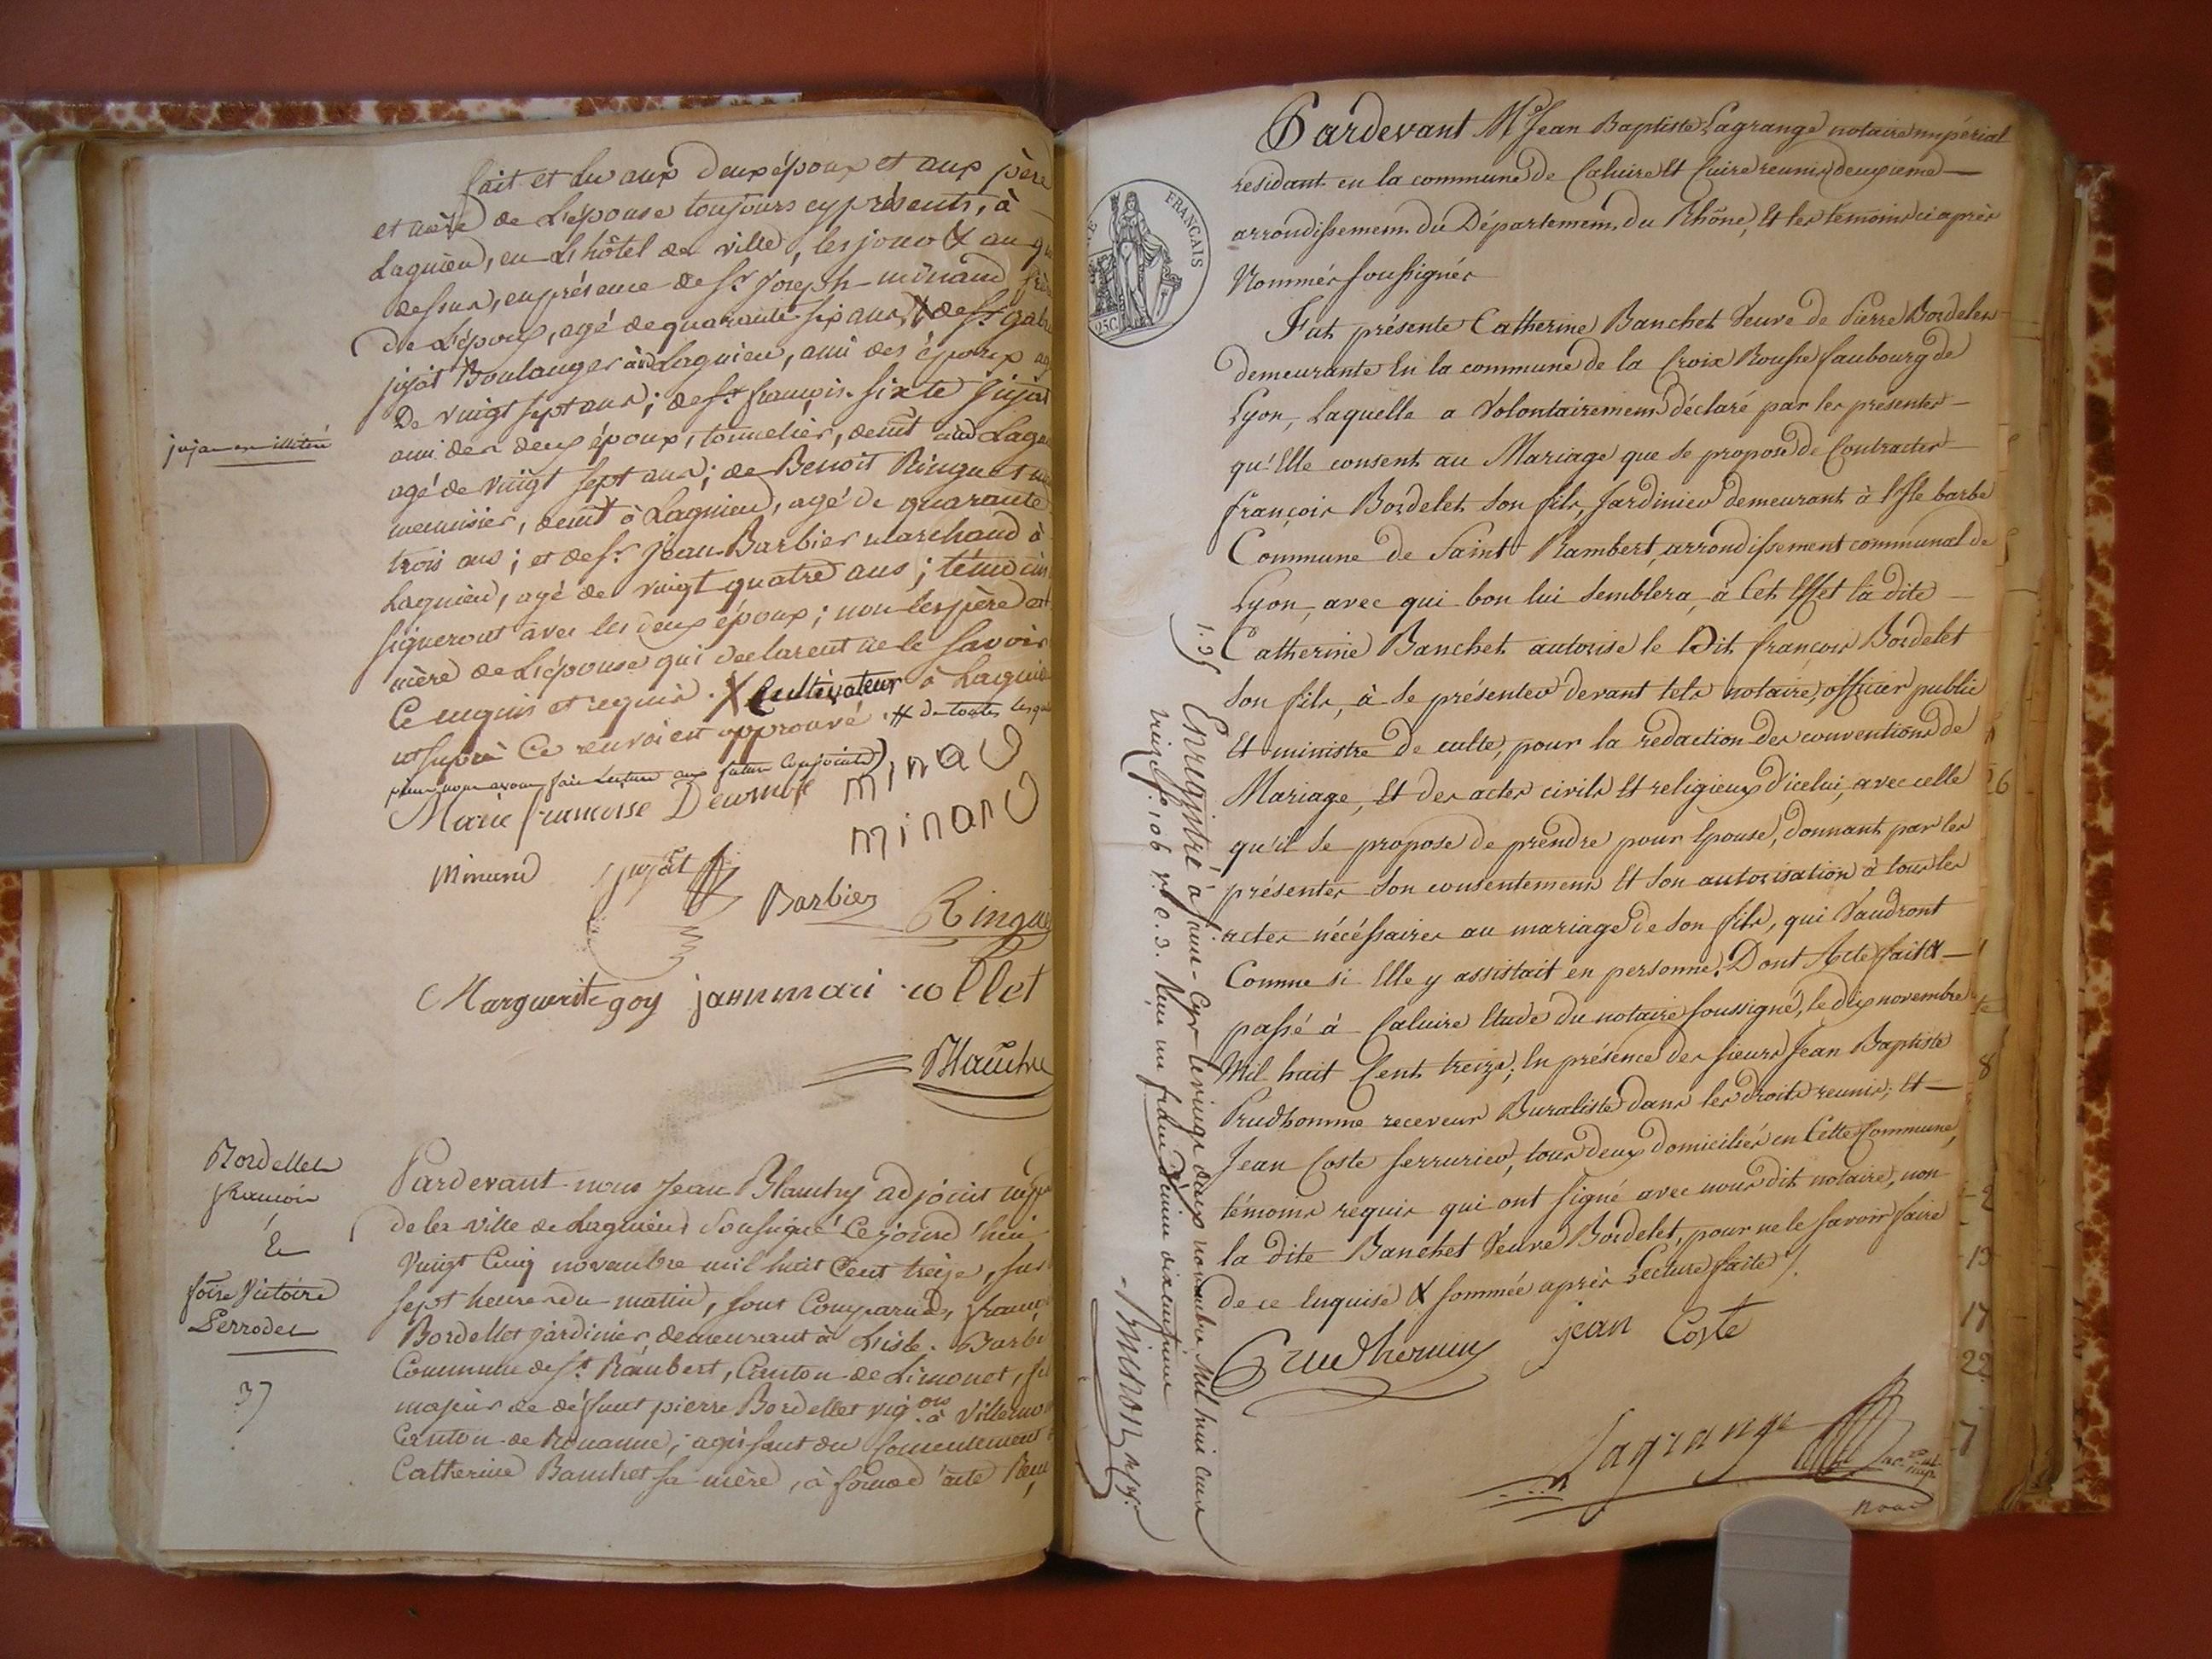 fait et lu aux deux époux et aux père
et mère de L'épouse toujours cy présents, à
Lagnieu, en L'hôtel de ville, les jour & an
dessus, en présence de Sr. Joseph minand
De L'époux, agé de quarante six ans, X de Sr. gab
jujat Boulanger à Lagnieu, ami des époux
De vingt sept ans; de Sr. françois sixte jujat
ami des deux époux, tonnelier, demt. aud Lag
agé de vingt sept ans; de Benoit Ringuet
menuisier, demt. à Lagnieu, agé de quarante
trois ans; et de Sr. jean Barbier marchand à
Lagnieu, agé de vingt quatre ans; témoins
signeront avec les deux époux; non les père et
mère de L'épouse qui declarent ne le savoir
Ce enquis et requis. X Cultivateur à Lagnieu
utsupra Ce renvoi est approuvé. # de toutes les
nous avons fait Lecture aux futurs Conjoints
Marie françoise
minaD
minanD
Minand
jujat
Barbier
Ringue
Marguerite goy janmmari collet
Blanchy
Bordellet
francois
&
foise Victoire
Perrodet
37
Pardevant nous Jean Blanchy adjoint
de la ville de Lagnieu Soussigné Cejourd'hui
Vingt Cinq novembre mil huit Cent treize, sur
sept heures du matin, sont Comparuds, franç
Bordellet jardinier, demeurant à L'isle. Barbe
Commune de St. Rambert, Canton de Limonet, fils
majeur de défunt pierre Bordellet vigon. à Villemo
Canton de Rouanne; agissant du Consentement
Catherine Banchet sa mère, à forme d'acte Reçu
FRANÇAIS
25C
Pardevant Me. Jean Baptiste Lagrange notaire impérial
residant en la commune de Caluire Et Cuire reunis deuxieme
arrondissement du Département du Rhône, Et les témoins ci après
Nommés soussignés
Fut présente Catherine Banchet Veuve de Pierre Bordelet
demeurante En la commune de la Croix Rousse faubourg de
Lyon, Laquelle a Volontairement déclaré par les présentes
qu'Elle consent au Mariage que se propose de Contracter
françois Bordelet Son fils, Jardinier demeurant à l'Isle barbe
Commune de Saint Rambert, arrondissement communal de
Lyon, avec qui bon lui Semblera, à Cet Effet la dite
Catherine Banchet autorise le Dit françois Bordelet
Son fils, à Se présenter devant tels notaire, officier public
Et ministre de culte, pour la redaction des conventions de
Mariage, Et des actes civils Et religieux d'icelui, avec celle
qu'il Se propose de prendre pour Epouse, donnant par les
présentes Son consentement Et Son autorisation à tous les
actes nécéssaires au mariage de Son fils, qui Vaudront
Comme si Elle y assistait en personne. Dont Acte fait &
passé à Caluire Etude du notaire soussigné, le dix novembre
Mil huit Cent treize; En présence des sieurs Jean Baptiste
Prudhomme receveur Buraliste dans les droits reunis, Et
Jean Coste Serrurier, tous deux domiciliés en Cette Commune,
témoins requis qui ont signé avec nous dit notaire, non
la dite Banchet Veuve Bordelet, pour ne le savoir faire
de ce Enquise & sommée après Lecture faite /.
jean Coste
Lagrange
1.35
Enregistré à Saint-Cyr le vingt deux novembre Mil huit cent
treize fo. 106 Vo. C. 3. Reçu un franc Dixime dix centimes